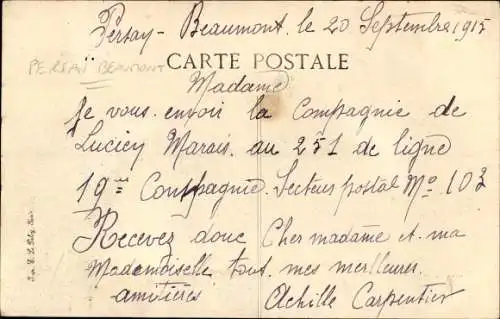 Persay - Beaumont. le 20 Septembre 1915
PERSAÏ BEAUMONT
CARTE POSTALE
Madame
Je vous. envoir la Compagnie de
Lucien Marais. au 251 de ligne
19me Compagnie. Secteur postal No 103
Recevez donc Cher madame et ma
Mademoiselle tout. mes merlleures
amitières Achille Carpentier